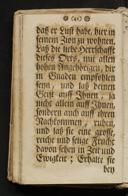 (41)
daß er Lust habe, hier in
seinem Zion zu wohnen.
Laß die liebe Herrschafft
dieses Orts, mit allen
hohen Angehörigen, dir
in Gnaden empfohlen
seyn, und laß deinen
Geist auff Ihnen, ja
nicht allein auff Ihnen,
sondern auch auff ihren
Nachkommen, ruhen,
und laß sie eine grosse,
reiche und selige Frucht
davon sehen in Zeit und
Ewigkeit; Erhalte sie
bey